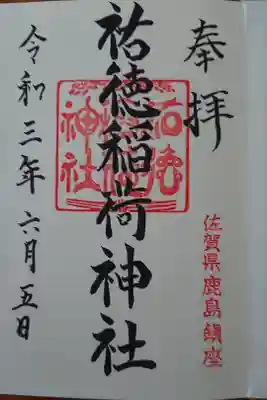 奉拝
佐賀県鹿島鎮座
祐徳稲荷神社
令和三年六月五日